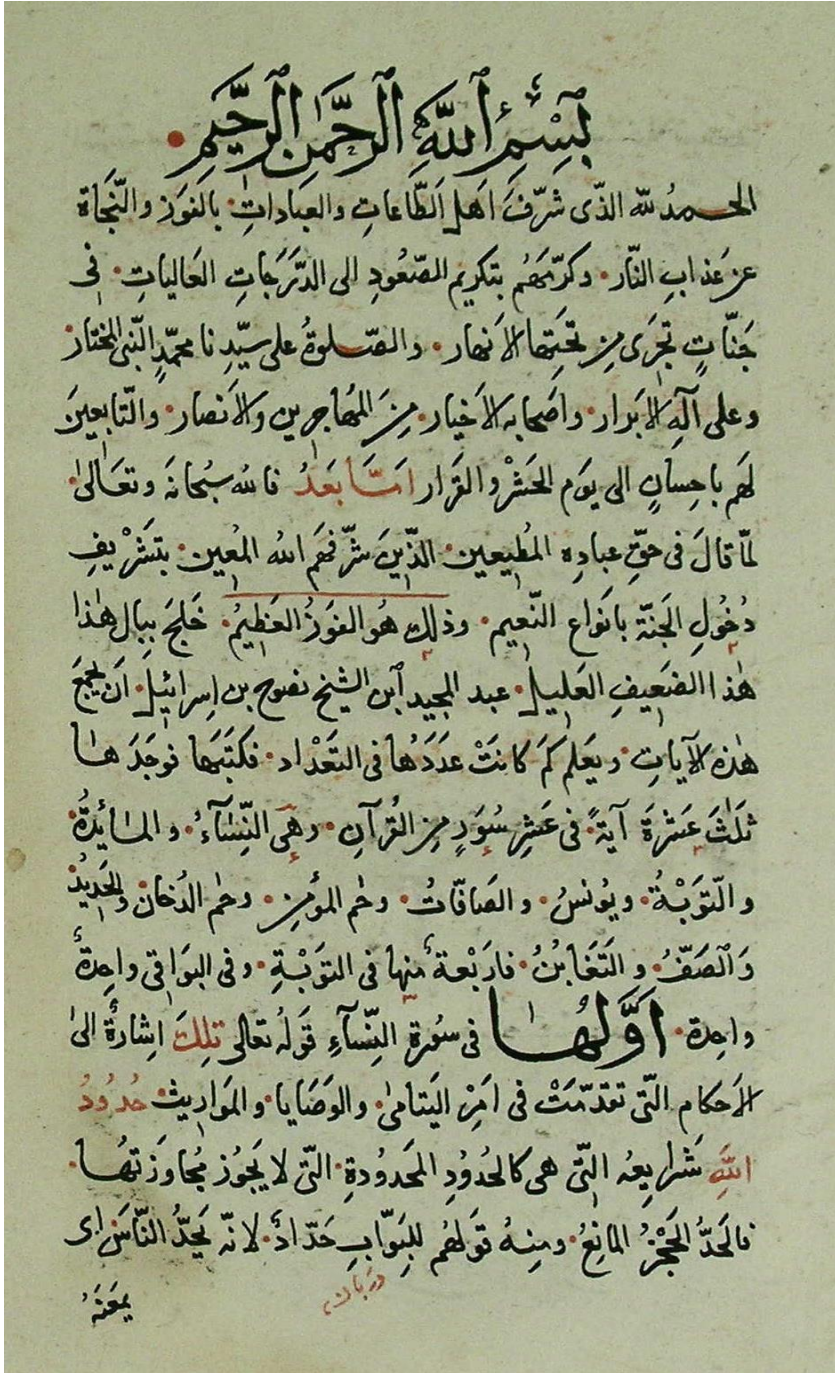 بِسْمِ ٱللَّهِ ٱلرَّحْمٰنِ ٱلرَّحِيمِ
الحمدُ للّه الذّى شرّفَ اهل الطّاعاتِ والعبَاداتِ بالفوَز والنّجَاة
عن عَذابِ النّار وكرّمَهُم بتكريم الصّعُودِ الى الدّرَجاتِ العَالياتِ فى
جَنّاتٍ تجرَى مِن تحتِها الانهار والصّلوةُ على سيّدِنا محمّدٍ النّبى المختار
وعلى آلهِ الابرار واصحابه الاَخيار مِنَ المهُاجرين والاَنصار والتّابعينَ
لهَم باحسانٍ الى يوَم الحَشْر والقرَار امّا بَعدُ فالله سبُحانهَ وتعَالىٰ
لمّا قالَ فى حقِّ عبادِه المطُيعين الذّينَ شرّفهَم الله المعُين بتشَريفِ
دُخُولِ الجَنّة بانوَاع النّعيم وذلكِ هُو الفوَزُ العَظيمُ خَلجَ ببِال هٰذا
هٰذا الضَعِيفِ العَليل عبد المجيد ٱبن الشيخ نصوح بن اِسرائيل اَن يجمَعَ
هٰذه الآياتِ ويعَلم كَم كانتْ عدَدَهُا فى التعَدْاد فكتبَهَا فوَجَدَهَا
ثلَٰثَ عَشْرَةَ آيةً فى عَشِر سُوَرٍ مِن القُرآنِ وهَى النِّسَآءُ والمَائِدةُ
والتّوَبْةُ ويوُنسُ والصَافّاتُ وحٰم المؤمِن وحٰم الدُخان والحَديدُ
وَالصَفّ والتَغَابُنُ فارَبْعة منِها فى التوَبْةِ وفى البوَاقى واحِدةٌ
واحِدة اَوَّلهُا فى سُورةِ النِّسَآءِ قوَلهُ تعالى تلِكَ اِشارةٌ الىٰ
الاَحكام التّى تقدّمَتْ فى امَرِ اليَتامىٰ والوَصَايا والموَاريث حُدُودُ
اللّهِ شَرايعِهُ التّى هى كالحُدُودِ المحَدودةِ التّى لا يجَوُز مجُاوَزتهُا
فالحَدُّ الحَجْزُ المانِعُ ومِنهُ قوَلهُم للبِوَّابِ حَدّادٌ لانّه يحَدُّ النّاسَ اى
دربان
يمَنعَهُ